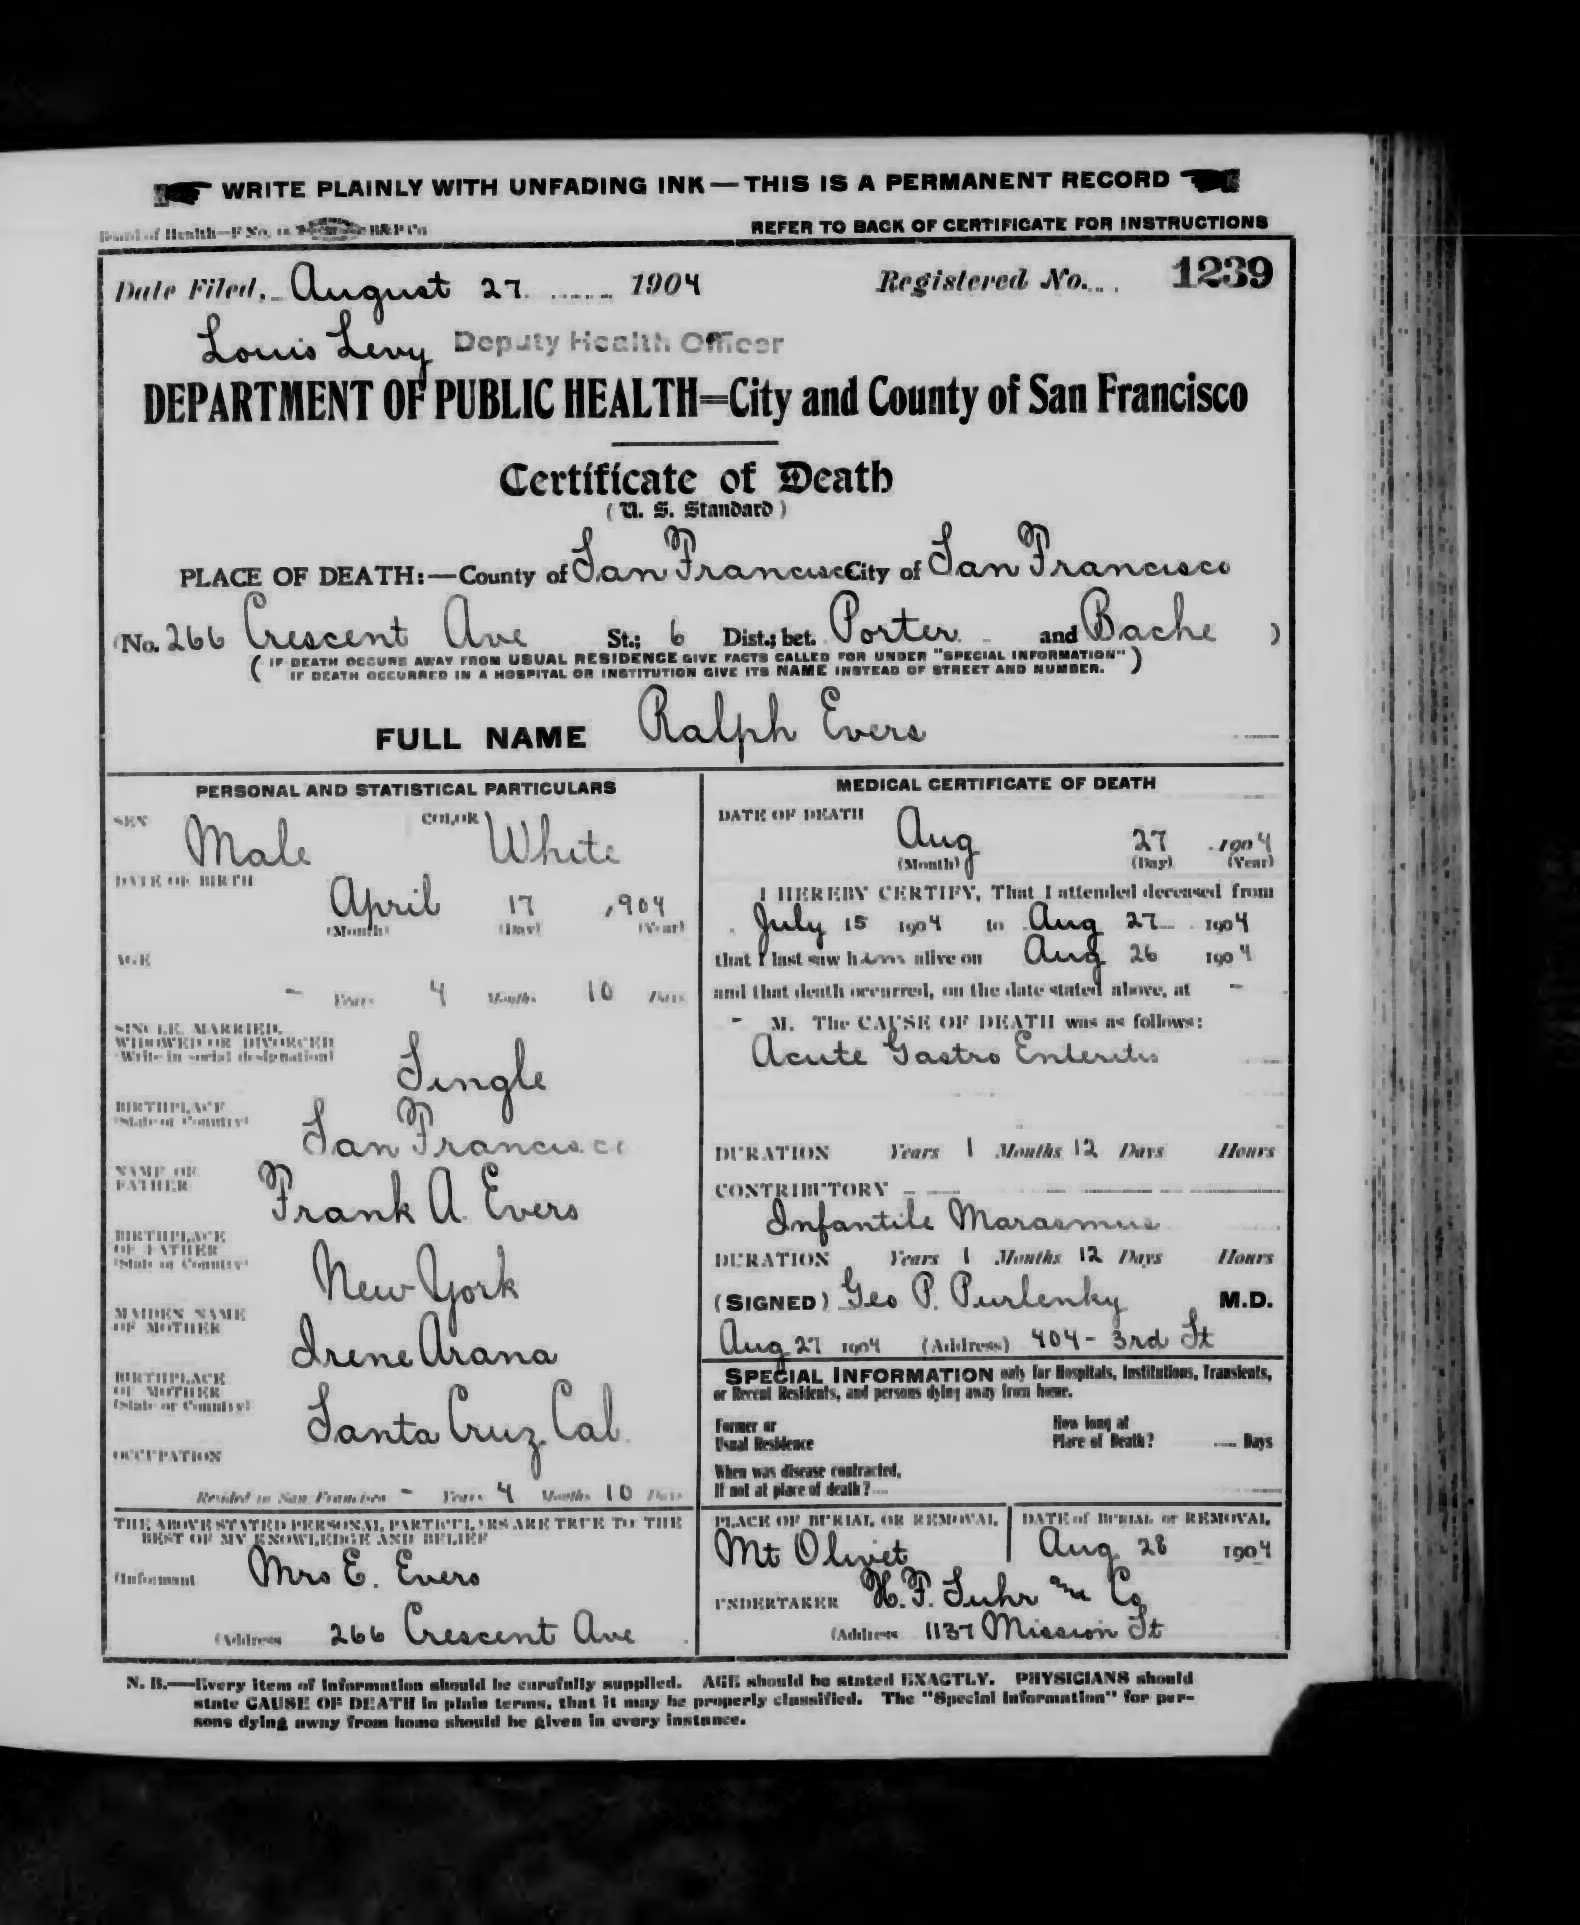 WRITE PLAINLY WITH UNFADING INK—THIS IS A PERMANENT RECORD
Board of Health—F No. B&P Co
REFER TO BACK OF CERTIFICATE FOR INSTRUCTIONS
Date Filed, August 27 1904 Registered No. 1239
Louis Levy Deputy Health Officer
DEPARTMENT OF PUBLIC HEALTH=City and County of San Francisco
Certificate of Death
(U. S. Standard)
PLACE OF DEATH:—County of San Francisco City of San Francisco
(No. 266 Crescent Ave St.; 6 Dist.; bet. Porter and Bache )
(IF DEATH OCCURS AWAY FROM USUAL RESIDENCE GIVE FACTS CALLED FOR UNDER "SPECIAL INFORMATION"
IF DEATH OCCURRED IN A HOSPITAL OR INSTITUTION GIVE ITS NAME INSTEAD OF STREET AND NUMBER.)
FULL NAME Ralph Evers
PERSONAL AND STATISTICAL PARTICULARS
SEX Male COLOR White
DATE OF BIRTH
April 17 ,904
(Month) (Day) (Year)
AGE
- Years 4 Months 10 Days
SINGLE, MARRIED,
WIDOWED OR DIVORCED
(Write in social designation)
Single
BIRTHPLACE
(State or Country)
San Francisco
NAME OF
FATHER
Frank A. Evers
BIRTHPLACE
OF FATHER
(State or Country)
New York
MAIDEN NAME
OF MOTHER
Irene Arana
BIRTHPLACE
OF MOTHER
(State or Country)
Santa Cruz Cal.
OCCUPATION
Resided in San Francisco - Years 4 Months 10 Days
THE ABOVE STATED PERSONAL PARTICULARS ARE TRUE TO THE
BEST OF MY KNOWLEDGE AND BELIEF
(Informant Mrs E. Evers
(Address 266 Crescent Ave
MEDICAL CERTIFICATE OF DEATH
DATE OF DEATH
Aug 27 1904
(Month) (Day) (Year)
I HEREBY CERTIFY, That I attended deceased from
July 15 1904 to Aug 27 1904
that I last saw him alive on Aug 26 1904
and that death occurred, on the date stated above, at -
- M. The CAUSE OF DEATH was as follows:
Acute Gastro Enteritis
DURATION Years 1 Months 12 Days Hours
CONTRIBUTORY
Infantile Marasmus
DURATION Years 1 Months 12 Days Hours
(SIGNED) Geo P. Purlenky M.D.
Aug 27 1904 (Address) 404-3rd St
SPECIAL INFORMATION only for Hospitals, Institutions, Transients,
or Recent Residents, and persons dying away from home.
Former or
Usual Residence
How long at
Place of Death? Days
When was disease contracted,
If not at place of death?
PLACE OF BURIAL OR REMOVAL
Mt Olivet
DATE of BURIAL or REMOVAL
Aug 28 1904
UNDERTAKER H. F. Suhr and Co
(Address 1137 Mission St
N. B.—Every item of information should be carefully supplied. AGE should be stated EXACTLY. PHYSICIANS should
state CAUSE OF DEATH in plain terms, that it may be properly classified. The "Special Information" for per-
sons dying away from home should be given in every instance.